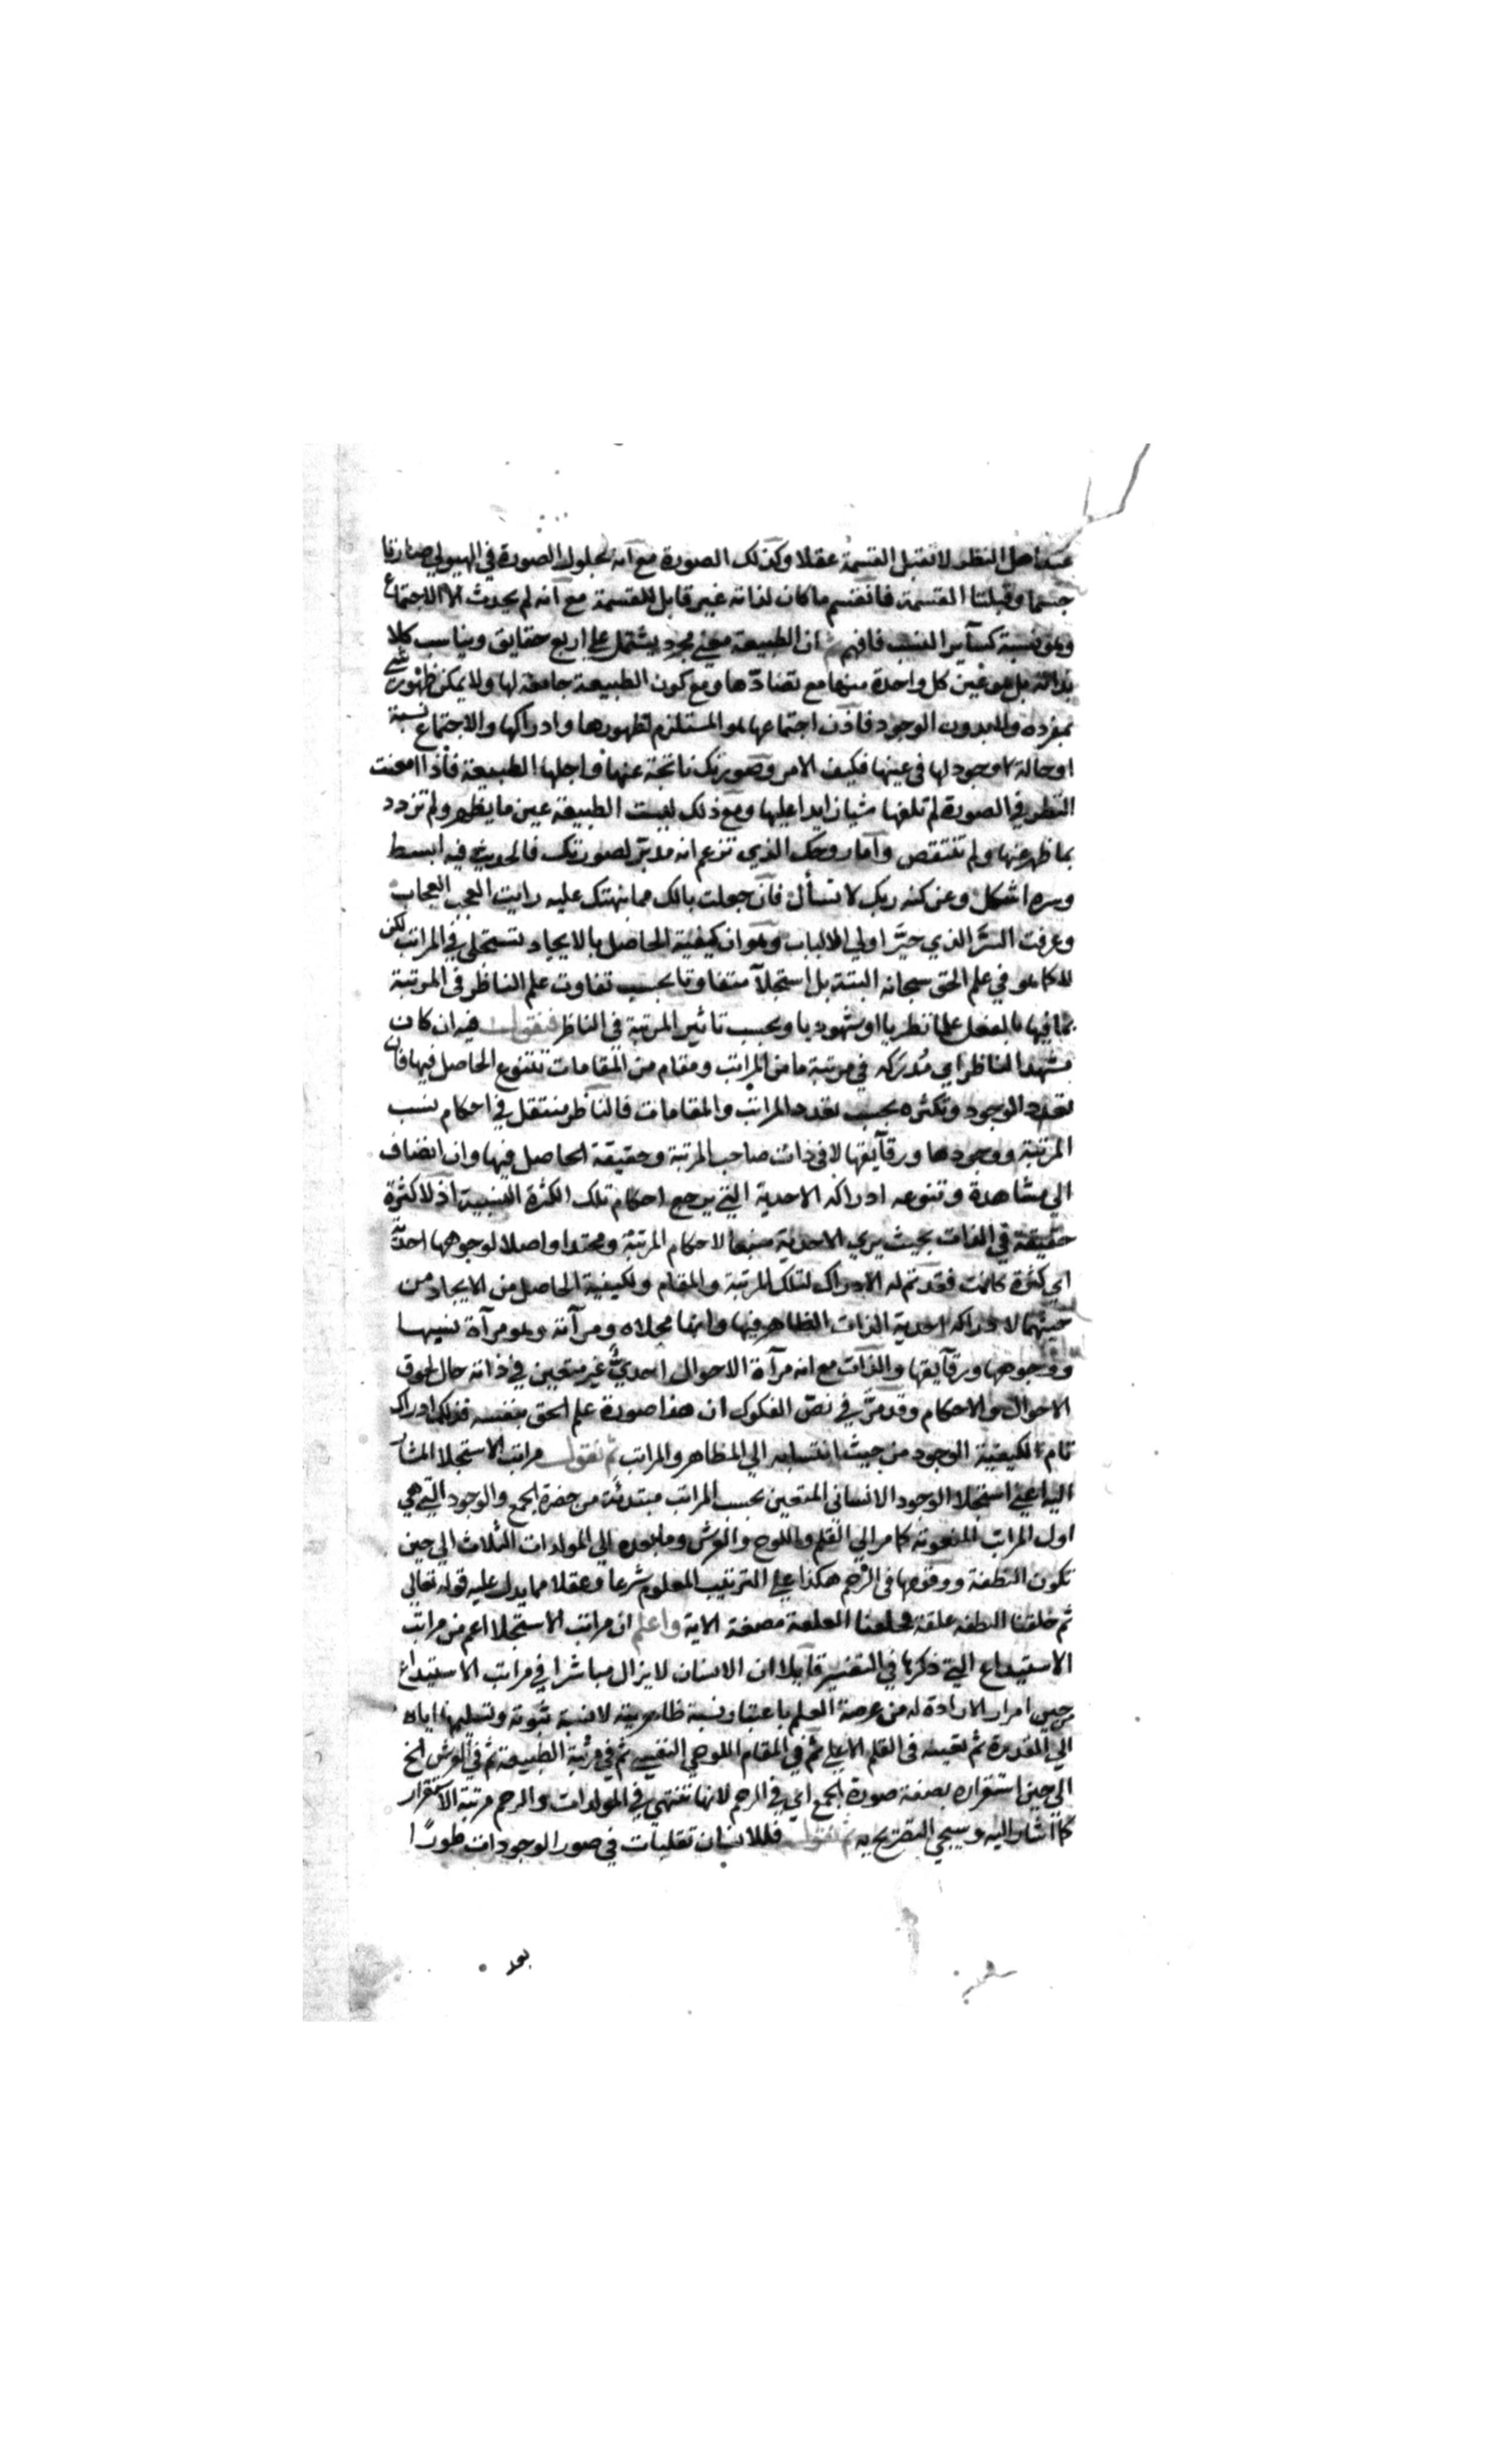 عند اهل النظر لا تقبل القسمة عقلا وكذلك الصورة مع انه بحلول الصورة في الهيولي صارتا
جسما وقبلتا القسمة فانقسم ما كان لذاته غير قابل للقسمة مع انه لم يحدث الا الاجتماع
وهو نسبة كسآير النسب فافهم ثم ان الطبيعة معني مجرد يشتمل علي اربع حقايق ويناسب كلا
بذاته بل هو عين كل واحدة منها مع تضادها ومع كون الطبيعة جامعة لها ولا يمكن ظهور شي
بمفرده ولا بدون الوجود فاذن اجتماعها هو المستلزم لظهورها وادراكها والاجتماع نسبة
او حالة لا وجود لها في عينها فكيف الامر وصورتك ناتجة عنها واجلها الطبيعة فاذا امعنت
النظر في الصورة لم تلفها شيا زايدا عليها ومع ذلك ليست الطبيعة عين ما يظهر ولم تزدد
بما ظهر عنها ولم تنتقص واما روحك الذي تزعم انه مدبر لصورتك فالحديث فيه ابسط
وسره اشكل وعن كنه ربك لا تسأل فان جعلت بالك مما نبهتك عليه رايت العجب العجاب
وعرفت السر الذي حير اولي الالباب وهو ان كيفية الحاصل بالايجاد تستجلي في المراتب لكن
لا كما هو في علم الحق سبحانه البتة بل استجلآ متفاوتا بحسب تفاوت علم الناظر في المرتبة
بما فيها بالفعل علما نظريا او شهوديا وبحسب تاثير المرتبة في الناظر فنقول فيه ان كان
مشهد الناظر اي مُدركه في مرتبة ما من المراتب ومقام من المقامات تنوع الحاصل فيها فان
تعدد الوجود وتكثره بحسب تعدد المراتب والمقامات فالناظر منتقل في احكام نسب
المرتبة ووجوهها ورقآيقها لا في ذات صاحب المرتبة وحقيقة الحاصل فيها وان انضاف
الي مشاهدة وتنوعه ادراكه الاحدية التي يرجع احكام تلك الكثرة النسبية اذ لا كثرة
حقيقة في الذات بحيث يري الاحدية منبعا لاحكام المرتبة ومحتدا واصلا لوجوهها احدية
اي كثرة كانت فقد تم له الادراك لتلك المرتبة والمقام ولكيفية الحاصل من الايجاد من
حيثهما لادراكه احدية الذات الظاهر فيها وانها مجلاه ومرآته وهو مرآة نسبها
ووجوهها ورقآيقها والذات مع انه مرآة الاحوال احديٌّ غير متعين في ذاته حال لحوق
الاحوال والاحكام وقد مرّ في نصّ الفكوك ان هذا صورة علم الحق بنفسه فذلك ادراك
تام لكيفية الوجود من حيث انتسابه الي المظاهر والمراتب ثم نقول مراتب الاستجلا المشار
اليه اعني استجلا الوجود الانساني المتعين بحسب المراتب مبتدئة من حضرة الجمع والوجود التي هي
اول المراتب المنعوتة كما مر الي القلم واللوح والعرش وما بعده الي المولدات الثلاث الي حين
تكون النطفة ووقوعها في الرحم هكذا علي الترتيب المعلوم شرعا وعقلا مما يدل عليه قوله تعالي
ثم خلقنا النطفة علقة فخلقنا العلقة مضغة الاية واعلم ان مراتب الاستجلا اعم من مراتب
الاستيداع التي ذكرها في التفسير قآيلا ان الانسان لا يزال مباشرا في مراتب الاستيداع
من حين امرار الارادة له من عرصة العلم باعتبار نسبة ظاهريته لا نسبة ثبوته وتسليمها اياه
الي القدرة ثم تعينه في القلم الاعلي ثم في المقام اللوحي النفسي ثم في مرتبة الطبيعة ثم في العرش الخ
الي حين استقراره بصفة صورة الجمع اي في الرحم لانها تنتهي في المولدات والرحم مرتبة الاستقرار
كما اشار اليه وسيجي التصريح به ثم نقول فللانسان تقلبات في صور الوجودات طورًا